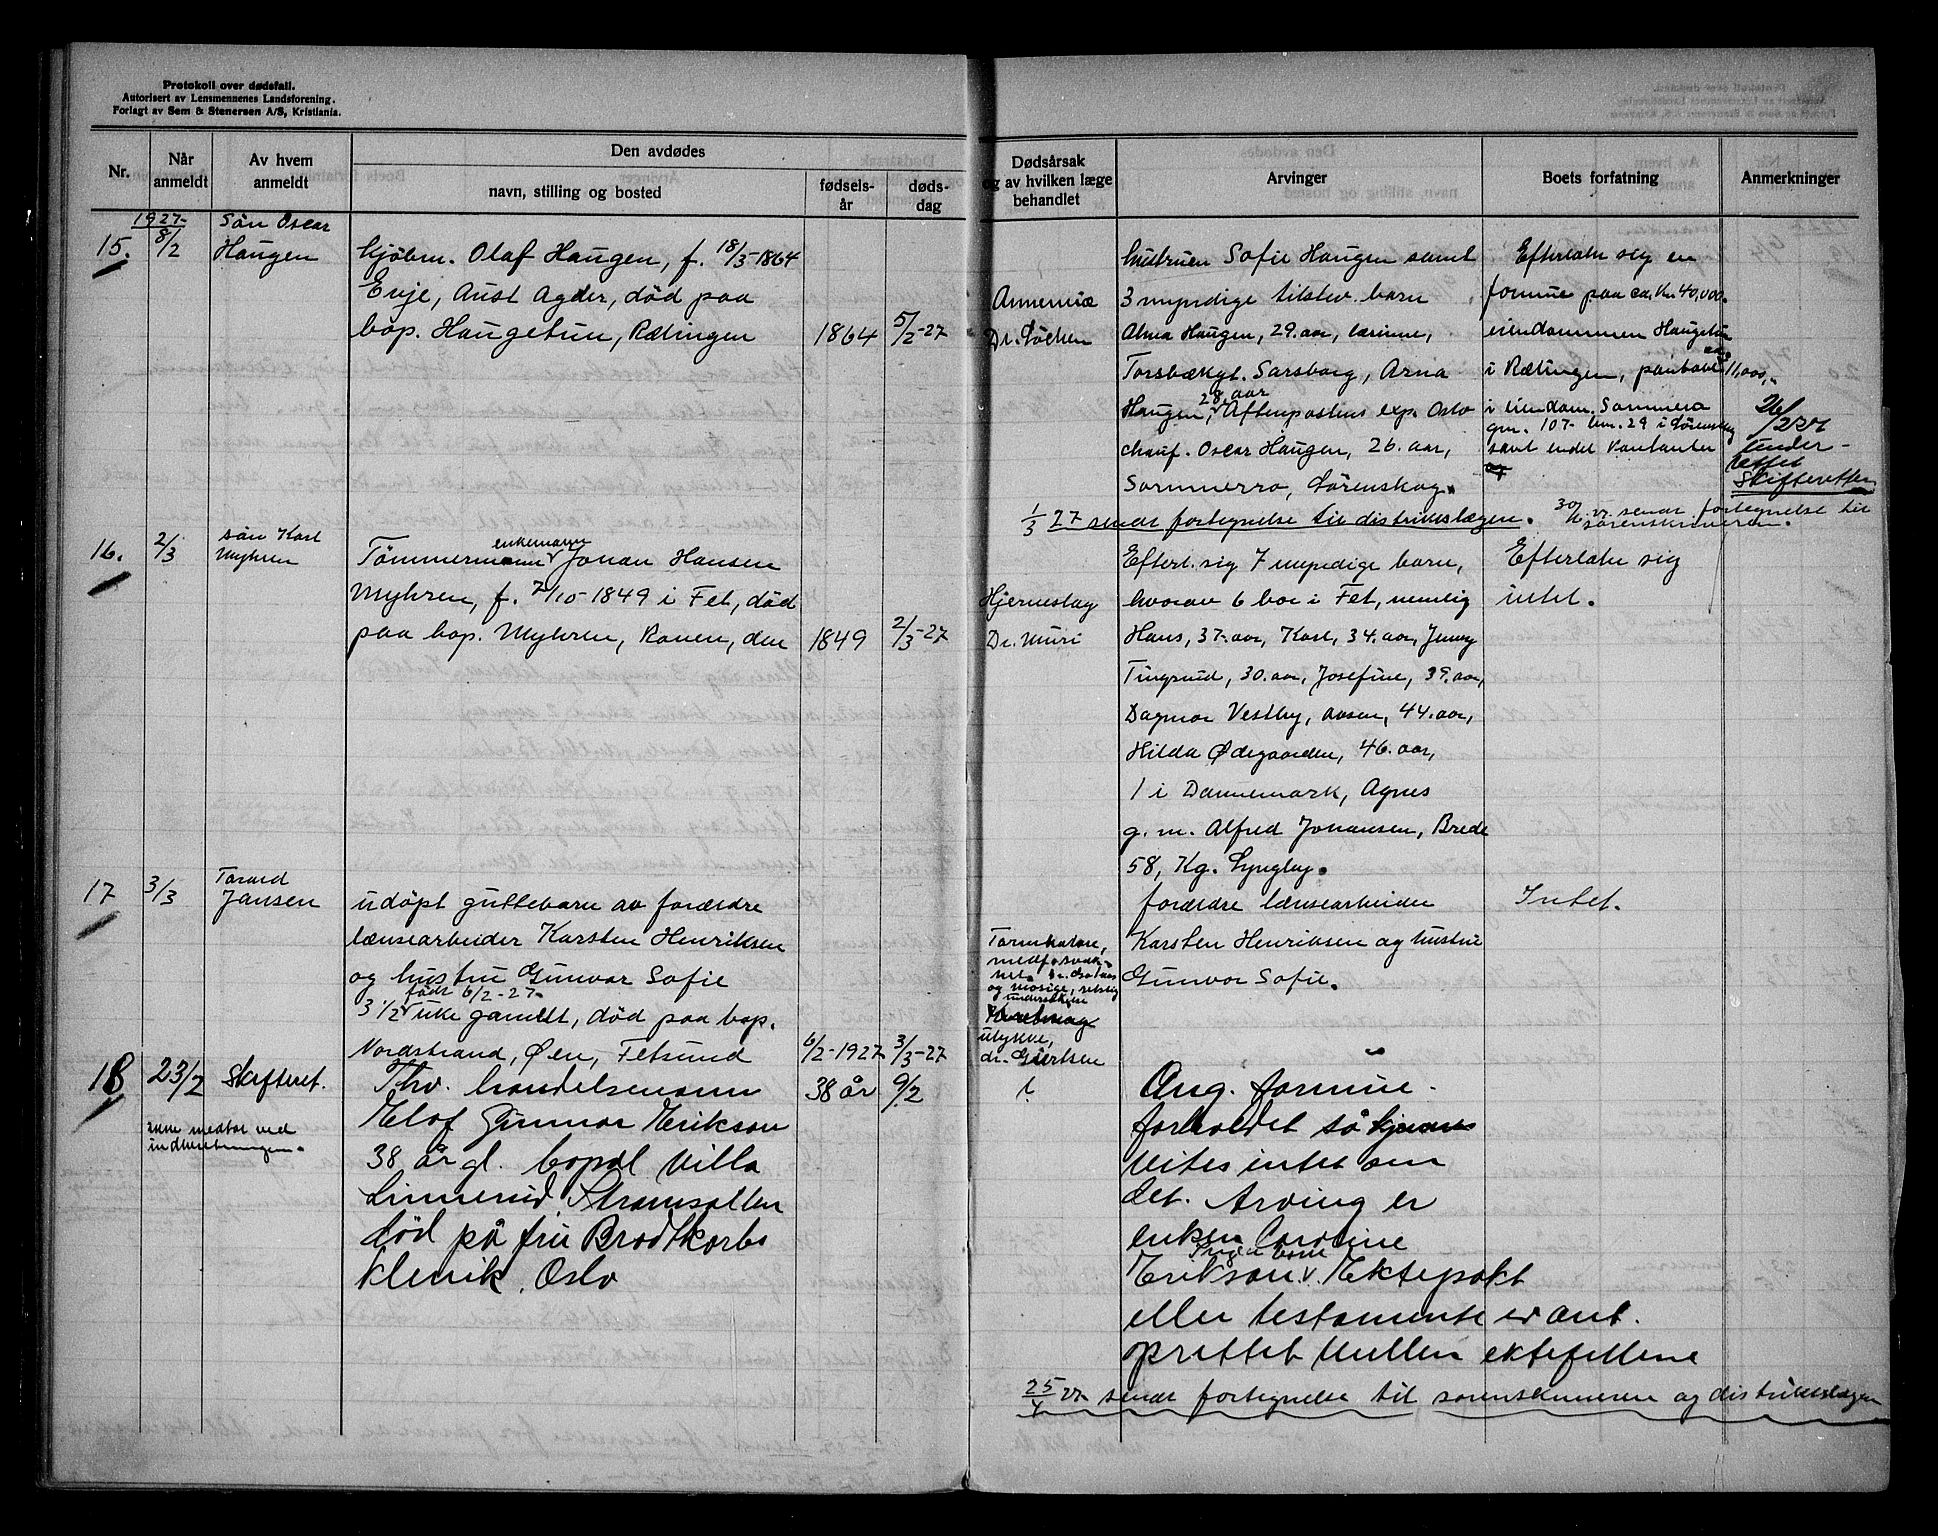 Protokoll over dødsfall.
Autorisert av Lensmennenes Landsforening.
Forlagt av Sem & Stenersen A/S, Kristiania.
Nr.
Når
anmeldt
Av hvem
anmeldt
Den avdødes
navn, stilling og bosted
fødsels-
år
døds-
dag
Dødsårsak
og av hvilken læge
behandlet
Arvinger
Boets forfatning
Anmerkninger
1927-
15.
8/2
Sön Oscar
Haugen
Kjöbm. Olaf Haugen, f. 18/3-1864
Evje, Aust Agder, död paa
bop. Haugetun, Rælingen
1864
5/2-27
Annemiæ
Dr. Löchen
hustruen Sofie Haugen samt
3 myndige tilstev. barn
Alma Haugen, 29. aar, lærinne,
Torsbækgt. Sarsborg, Arna
28. aar
Haugen, Aftenpostens exp. Oslo
chauf. Oscar Haugen, 26. aar,
Sommerro, Lörenskog.
Efterlater sig en
formue paa ca. Kr. 40,000.-
eiendommen Haugetun
i Rælingen, pantobl. ca. 11,000,-
i eiendom. Sommerro
gnr. 107- bnr. 29 i Lörenskog
samt endel kontanter
26/2 27
under-
rettet
Skifteretten
1/3 27 sendt fortegnelse til distriktslægen.
sendt fortegnelse til
sorenskriveren.
16.
2/3
sön Karl
Myhren
enkemann
Tömmermann Johan Hansen
Myhren, f. 7/10-1849 i Fet, död
paa bop. Myhren, Roven, den
1849
2/3-27
Hjerneslag
Dr. Muri
Efterl. sig 7 myndige barn,
hvorav 6 bor i Fet, nemlig
Hans, 37. aar, Karl, 34. aar, Jenny
Tingsrud, 30. aar, Josefine, 39. aar,
Dagmar Vestby, 44. aar,
Hilda Ødegaarden, 46. aar,
1 i Dannemark, Agnes
g. m. Alfred Johansen, Brede
58, Kg. Lyngby.
Efterlater sig
intet.
17
3/3
Jansen
udöpt guttebarn av forældre
lænsearbeider Karsten Henriksen
og hustru Gunvor Sofie
födt 6/2-27-
3 1/2 uke gammelt, död paa bop.
Nordstrand, Øen, Fetsund
6/2-1927
3/3-27
Tarmkatarr,
og
dr. Giertsen
forældre lænsearbeider
Karsten Henriksen og hustru
Gunvor Sofie.
Intet.
18
23/2
Skifteret.
ved
indberetningen.
Thv. handelsmann
Elof Gunnar Erikson
38 år gl. bopæl Villa
Linnerud, Strømsatten
död på fru Brodtkorbs
klenik, Oslo
38 år
9/2
?
Ang. formue-
forholdet så
vites intet om
det. Arving er
enken Caroline
Ingen barn
Erikson. Ektepakt
eller testamente er ant.
oprettet mellem ektefellene
25/4 27 sendt fortegnelse til sorenskriveren og distriktslægen